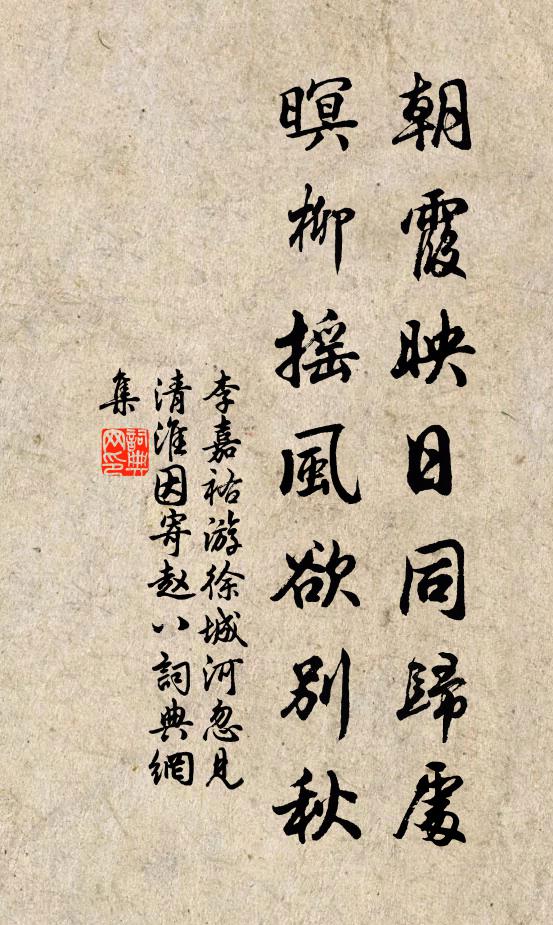 朝霞映日同歸處
暝柳摇風欲別秋
李嘉祐游徐城河忽見
清淮因寄赵八詞典網
集
詞典網印